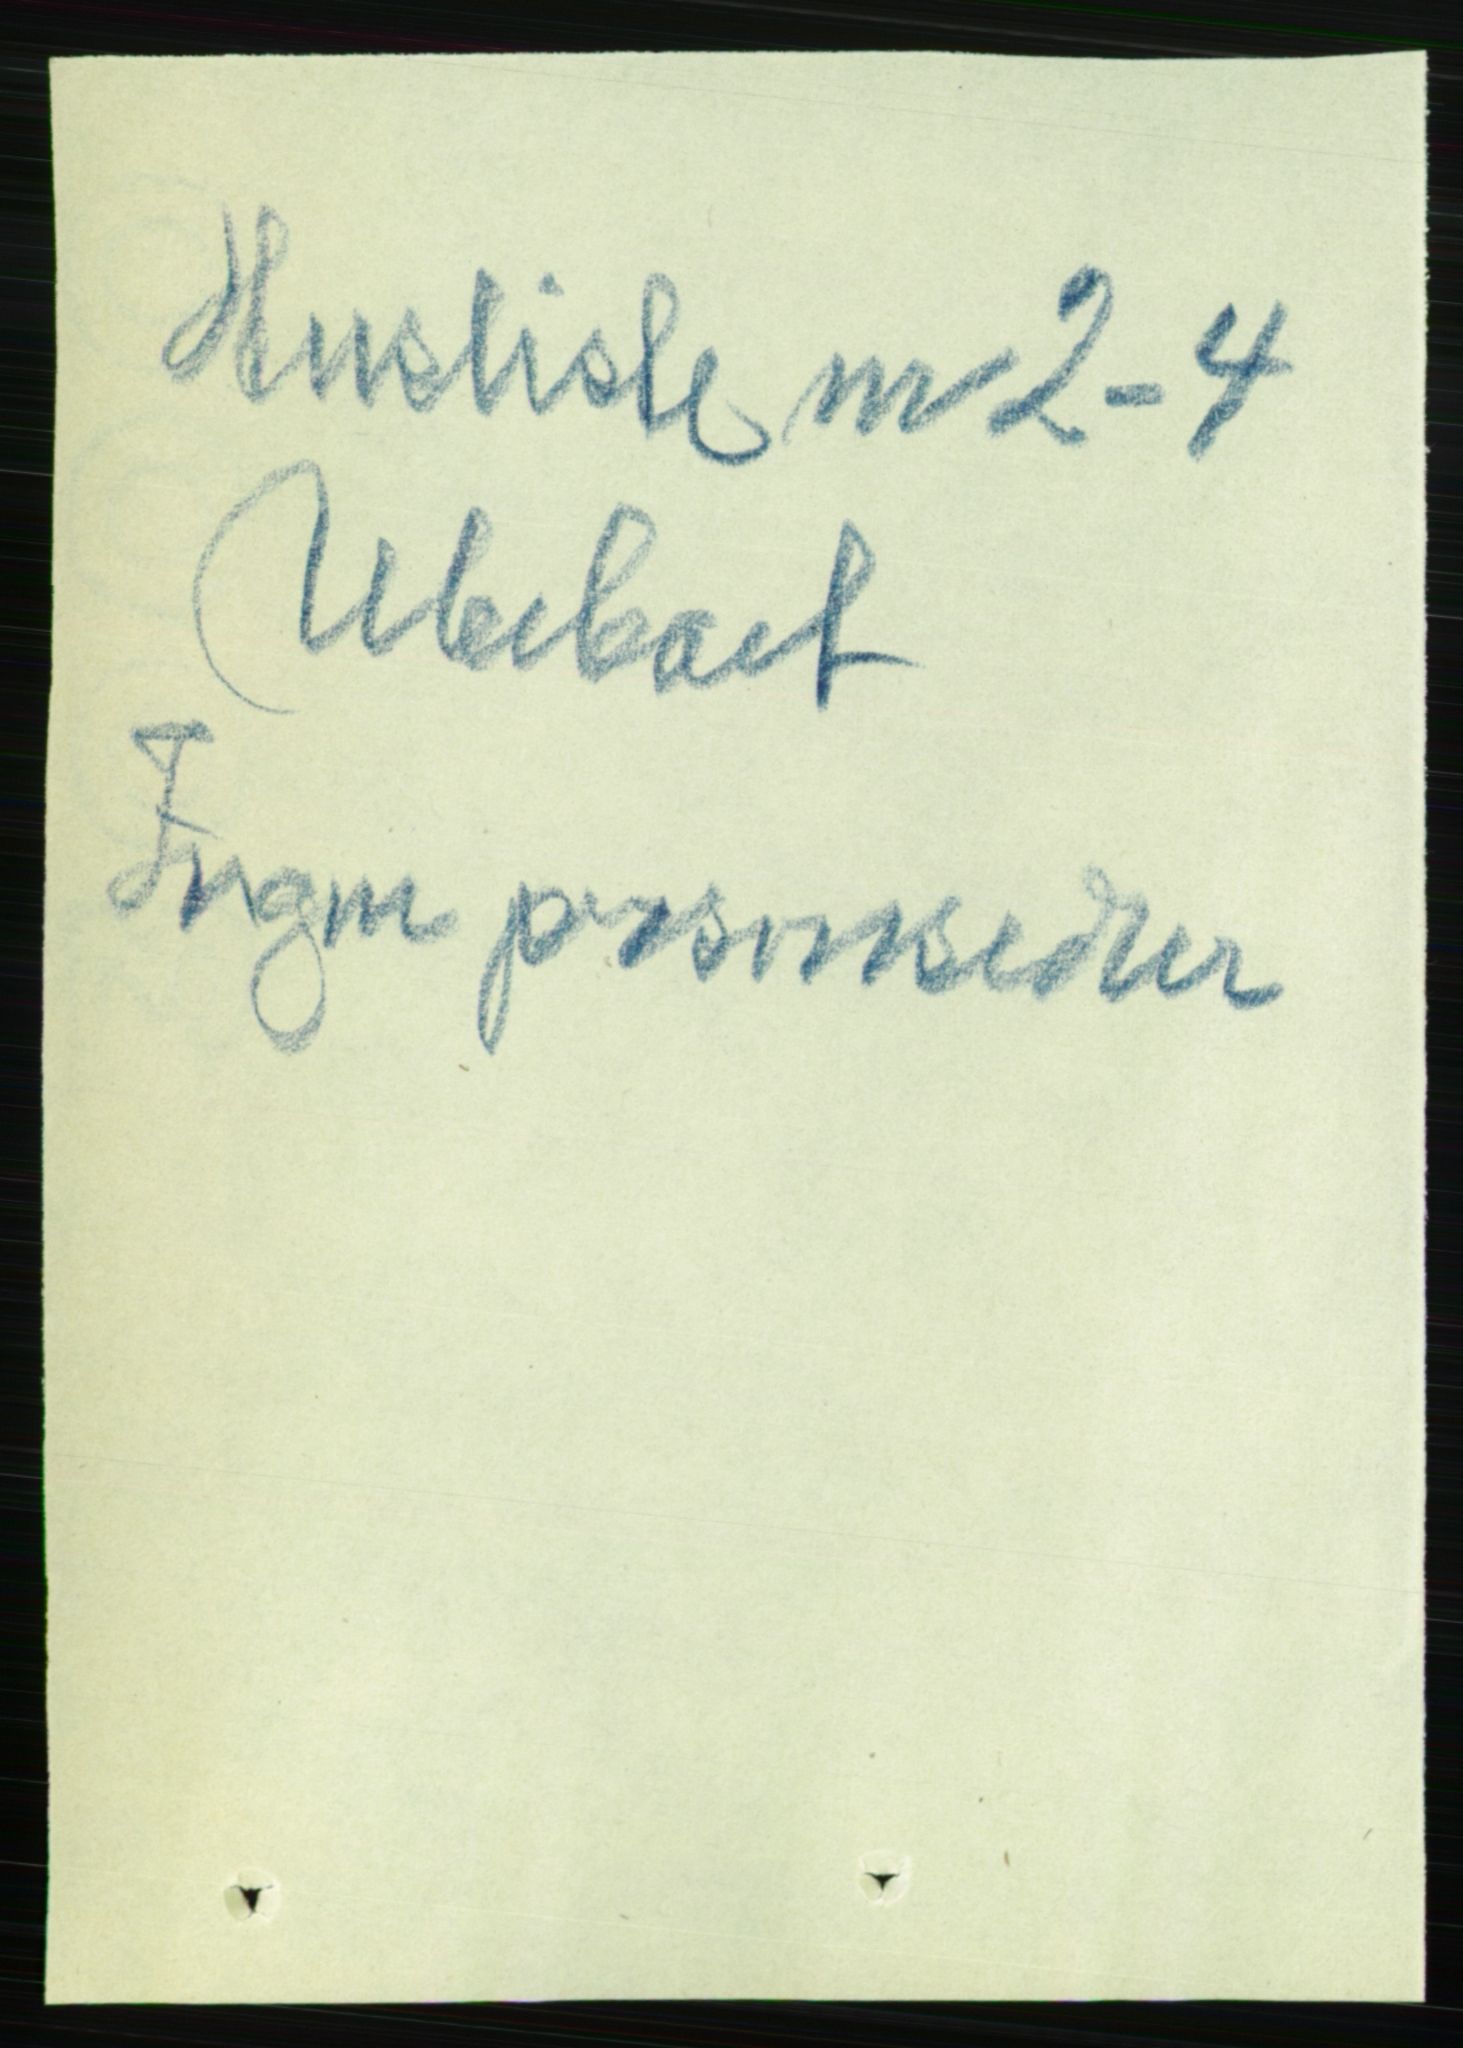 Husliste nr 2-4
Ubeboet
Ingen personsedler